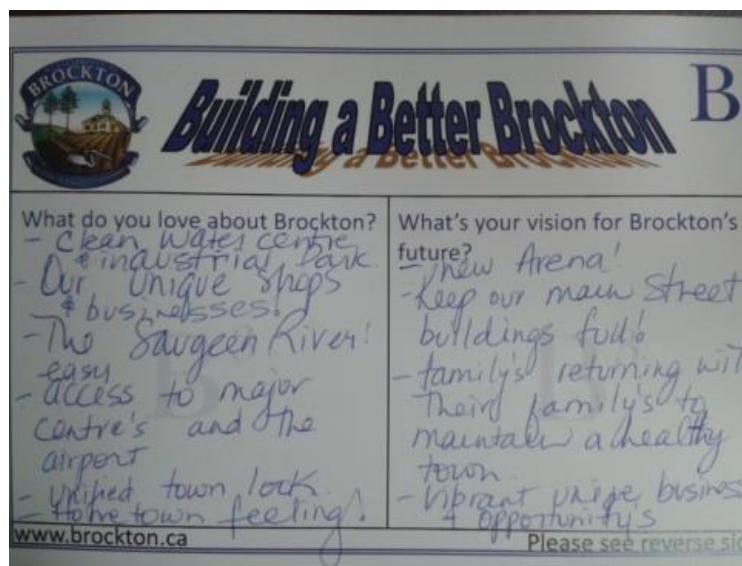 BROCKTON
Building a Better Brockton
B
What do you love about Brockton?
- Clean Water centre
& industrial Park
- Our Unique Shops
& businesses!
- The Saugeen River!
easy
- access to major
centre's and the
airport
- unified town look
- Home town feeling!
What's your vision for Brockton's
future?
- new Arena!
- Keep our main Street
buildings full!
- family's returning wit
Their family's to
maintain a healthy
town
- Vibrant unique business
+ opportunity's
www.brockton.ca
Please see reverse sid